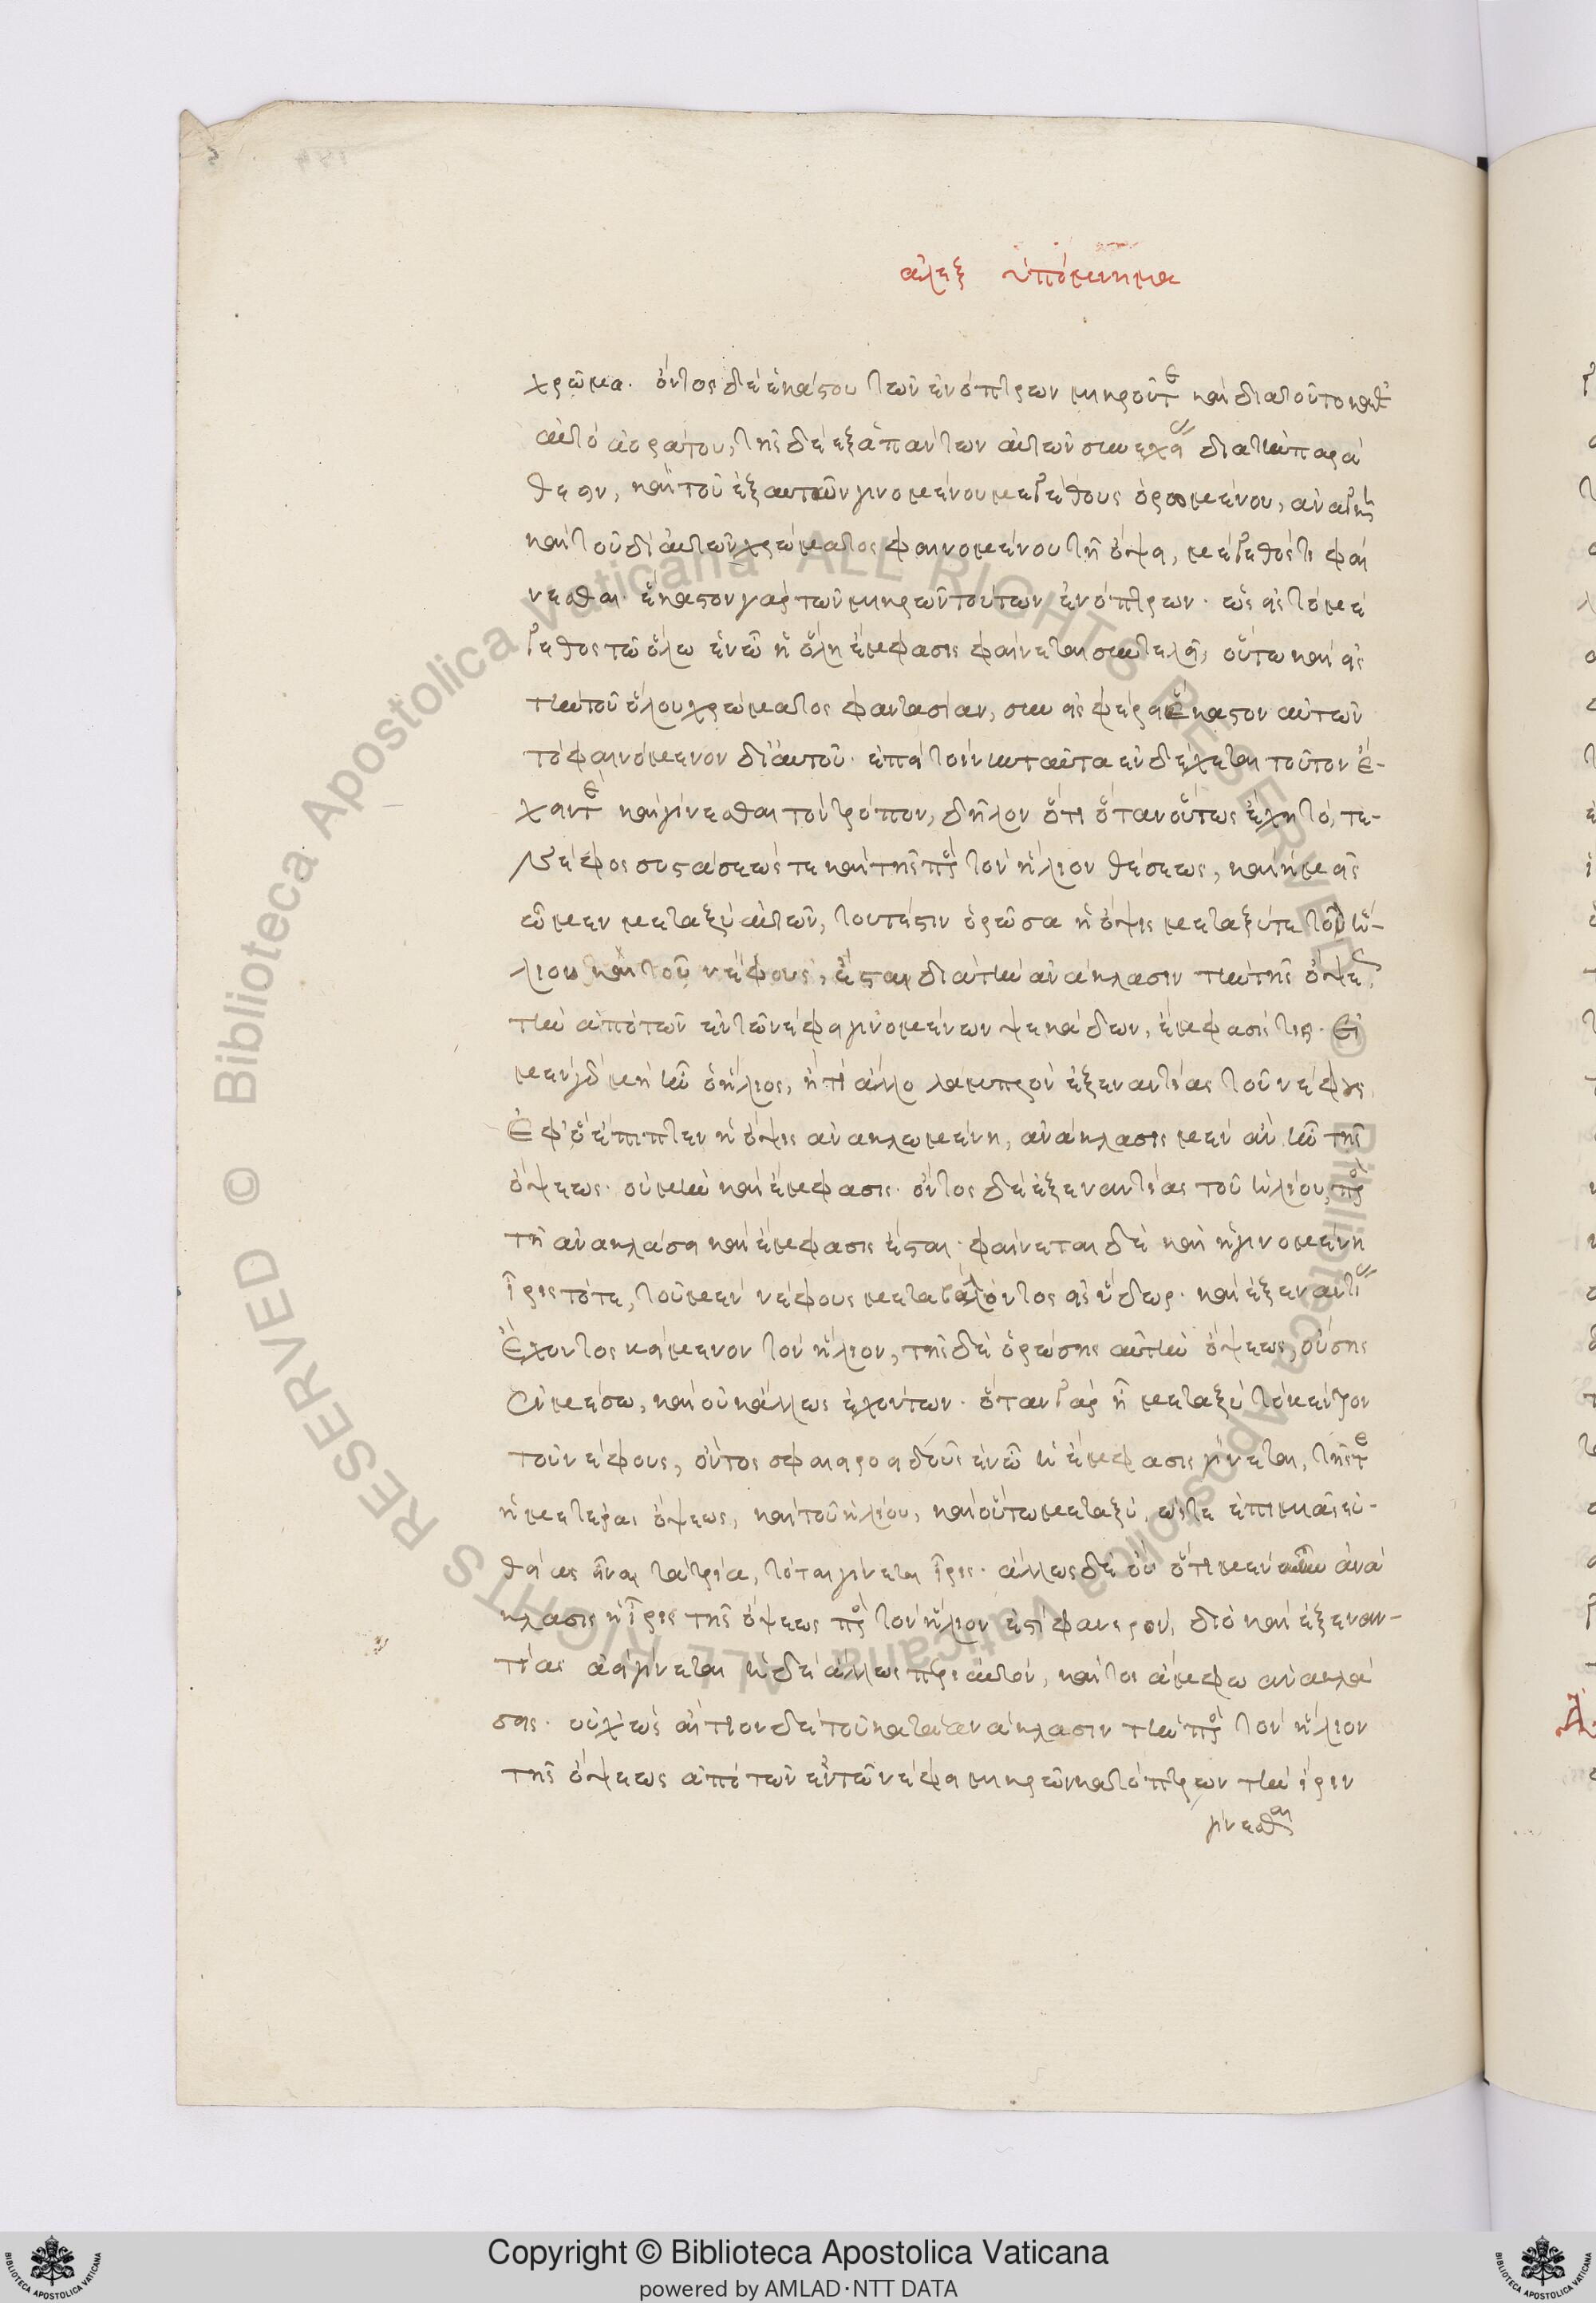 αλεξ ὑπόμνημα
χρῶμα. ὄντος δὲ ἑκάστου τῶν ἐνόπτρων μικροῦ τε καὶ διατοῦτο καθ'
αὑτὸ ἀοράτου, τῆς δὲ ἐξ ἁπάντων αὐτῶν συνεχείας διὰ τὴν παρά
θεσιν, καὶ τοῦ ἐξ αὐτῶν γινομένου μεγέθους ὁρωμένου, ἀνάγκη
καὶ τοῦ δι' αὐτῶν χρώματος φαινομένου τῇ ὄψει, μέγεθός τι φαί
νεσθαι. ἕκαστον γὰρ τῶν μικρῶν τούτων ἐνόπτρων. ὡς εἰς τὸ μέ
γεθος τῶ ὅλω ἐν ὧ ἡ ὅλη ἔμφασις φαίνεται συντελεῖ, οὕτω καὶ εἰς
τὴν τοῦ ὅλου χρώματος φαντασίαν, συνεισφέρει ἕκαστον αὐτῶν
τὸ φαινόμενον δι' αὐτοῦ. ἐπεὶ τοίνυν ταῦτα ἐνδέχεται τοῦτον ἔ-
χειν τε καὶ γίνεσθαι τὸν τρόπον, δῆλον ὅτι ὅταν οὕτως ἔχῃ τό, τε-
νέφος συστάσεώς τε καὶ τῆς πρὸς τὸν ἥλιον θέσεως, καὶ ἡμεῖς
ὦμεν μεταξὺ αὐτῶν, τουτέστιν ὁρῶσα ἡ ὄψις μεταξύ τε τοῦ ἡ-
λίου καὶ τοῦ νέφους, ἔσται διὰ τὴν ἀνάκλασιν τὴν τῆς ὄψεως
τὴν ἀπὸ τῶν ἐν τῶ νέφει γινομένων ψεκάδων, ἔμφασίς τις. εἰ
μὲν γὰρ μὴ ἦν ὁ ἥλιος, ἤ τι ἄλλο λαμπρὸν ἐξεναντίας τοῦ νέφους,
ἐφ' ὃ ἔπιπτεν ἡ ὄψις ἀνακλωμένη, ἀνάκλασις μὲν ἂν ἦν τῆς
ὄψεως. οὐ μὴν καὶ ἔμφασις. ὄντος δὲ ἐξεναντίας τοῦ ἡλίου, πρὸς
τῇ ἀνακλάσει καὶ ἔμφασις ἔσται. φαίνεται δὲ καὶ ἡ γινομένη
ἶρις τότε, τοῦ μὲν νέφους μεταβάλλοντος εἰς ὕδωρ. καὶ ἐξεναντίας
ἔχοντος κείμενον τὸν ἥλιον, τῆς δὲ ὁρώσης αὐτὴν ὄψεως, οὔσης
ἐν μέσω, καὶ οὐκ ἄλλως ἐχόντων. ὅταν γὰρ ἦ μεταξὺ τὸ κέντρον
τοῦ νέφους, ὄντος σφαιροειδοῦς ἐν ὧ ἡ ἔμφασις γίνεται, τῆς τε
ἡμετέρας ὄψεως, καὶ τοῦ ἡλίου, καὶ οὕτω μεταξύ, ὥστε ἐπὶ μιᾶς εὐ-
θείας εἶναι τὰ τρία, τότε γίνεται ἶρις. ἄλλως δὲ οὔ ὅτι μὲν οὖν ἀνά
κλασις ἡ ἶρις τῆς ὄψεως πρὸς τὸν ἥλιον ἐστὶ φανερόν, διὸ καὶ ἐξεναν-
τίας ἀεὶ γίνεται ἡ δὲ ἅλως περὶ αὐτόν, καίτοι ἄμφω ἀνακλά
σεις. οὐχ ὡς αἴτιον δὲ τοῦ κατὰ ἀνάκλασιν τὴν πρὸς τὸν ἥλιον
τῆς ὄψεως ἀπὸ τῶν ἐν τῶ νέφει μικρῶν κατόπτρων τὴν ἶριν
γίνεσθαι